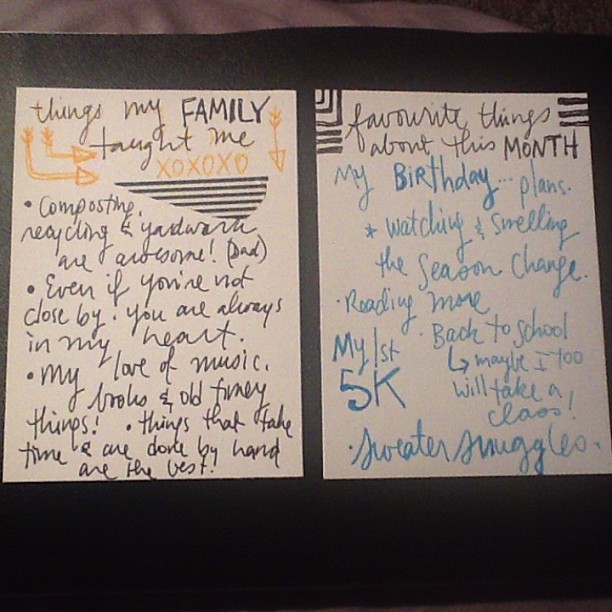 things my FAMILY
taught me
XOXOXO
• Composting,
recycling & yardwork
are awesome! (Dad)
• Even if you're not
close by. you are always
in my heart.
• My love of music.
books & old timey
things! • things that take
time & are done by hand
are the best!
favourite things
about this MONTH
My BiRthday... plans.
* watching & smelling
the Season Change.
• Reading more
• Back to school
↳ maybe I too
will take a
class!
My 1st
5K
• Sweater snuggles.